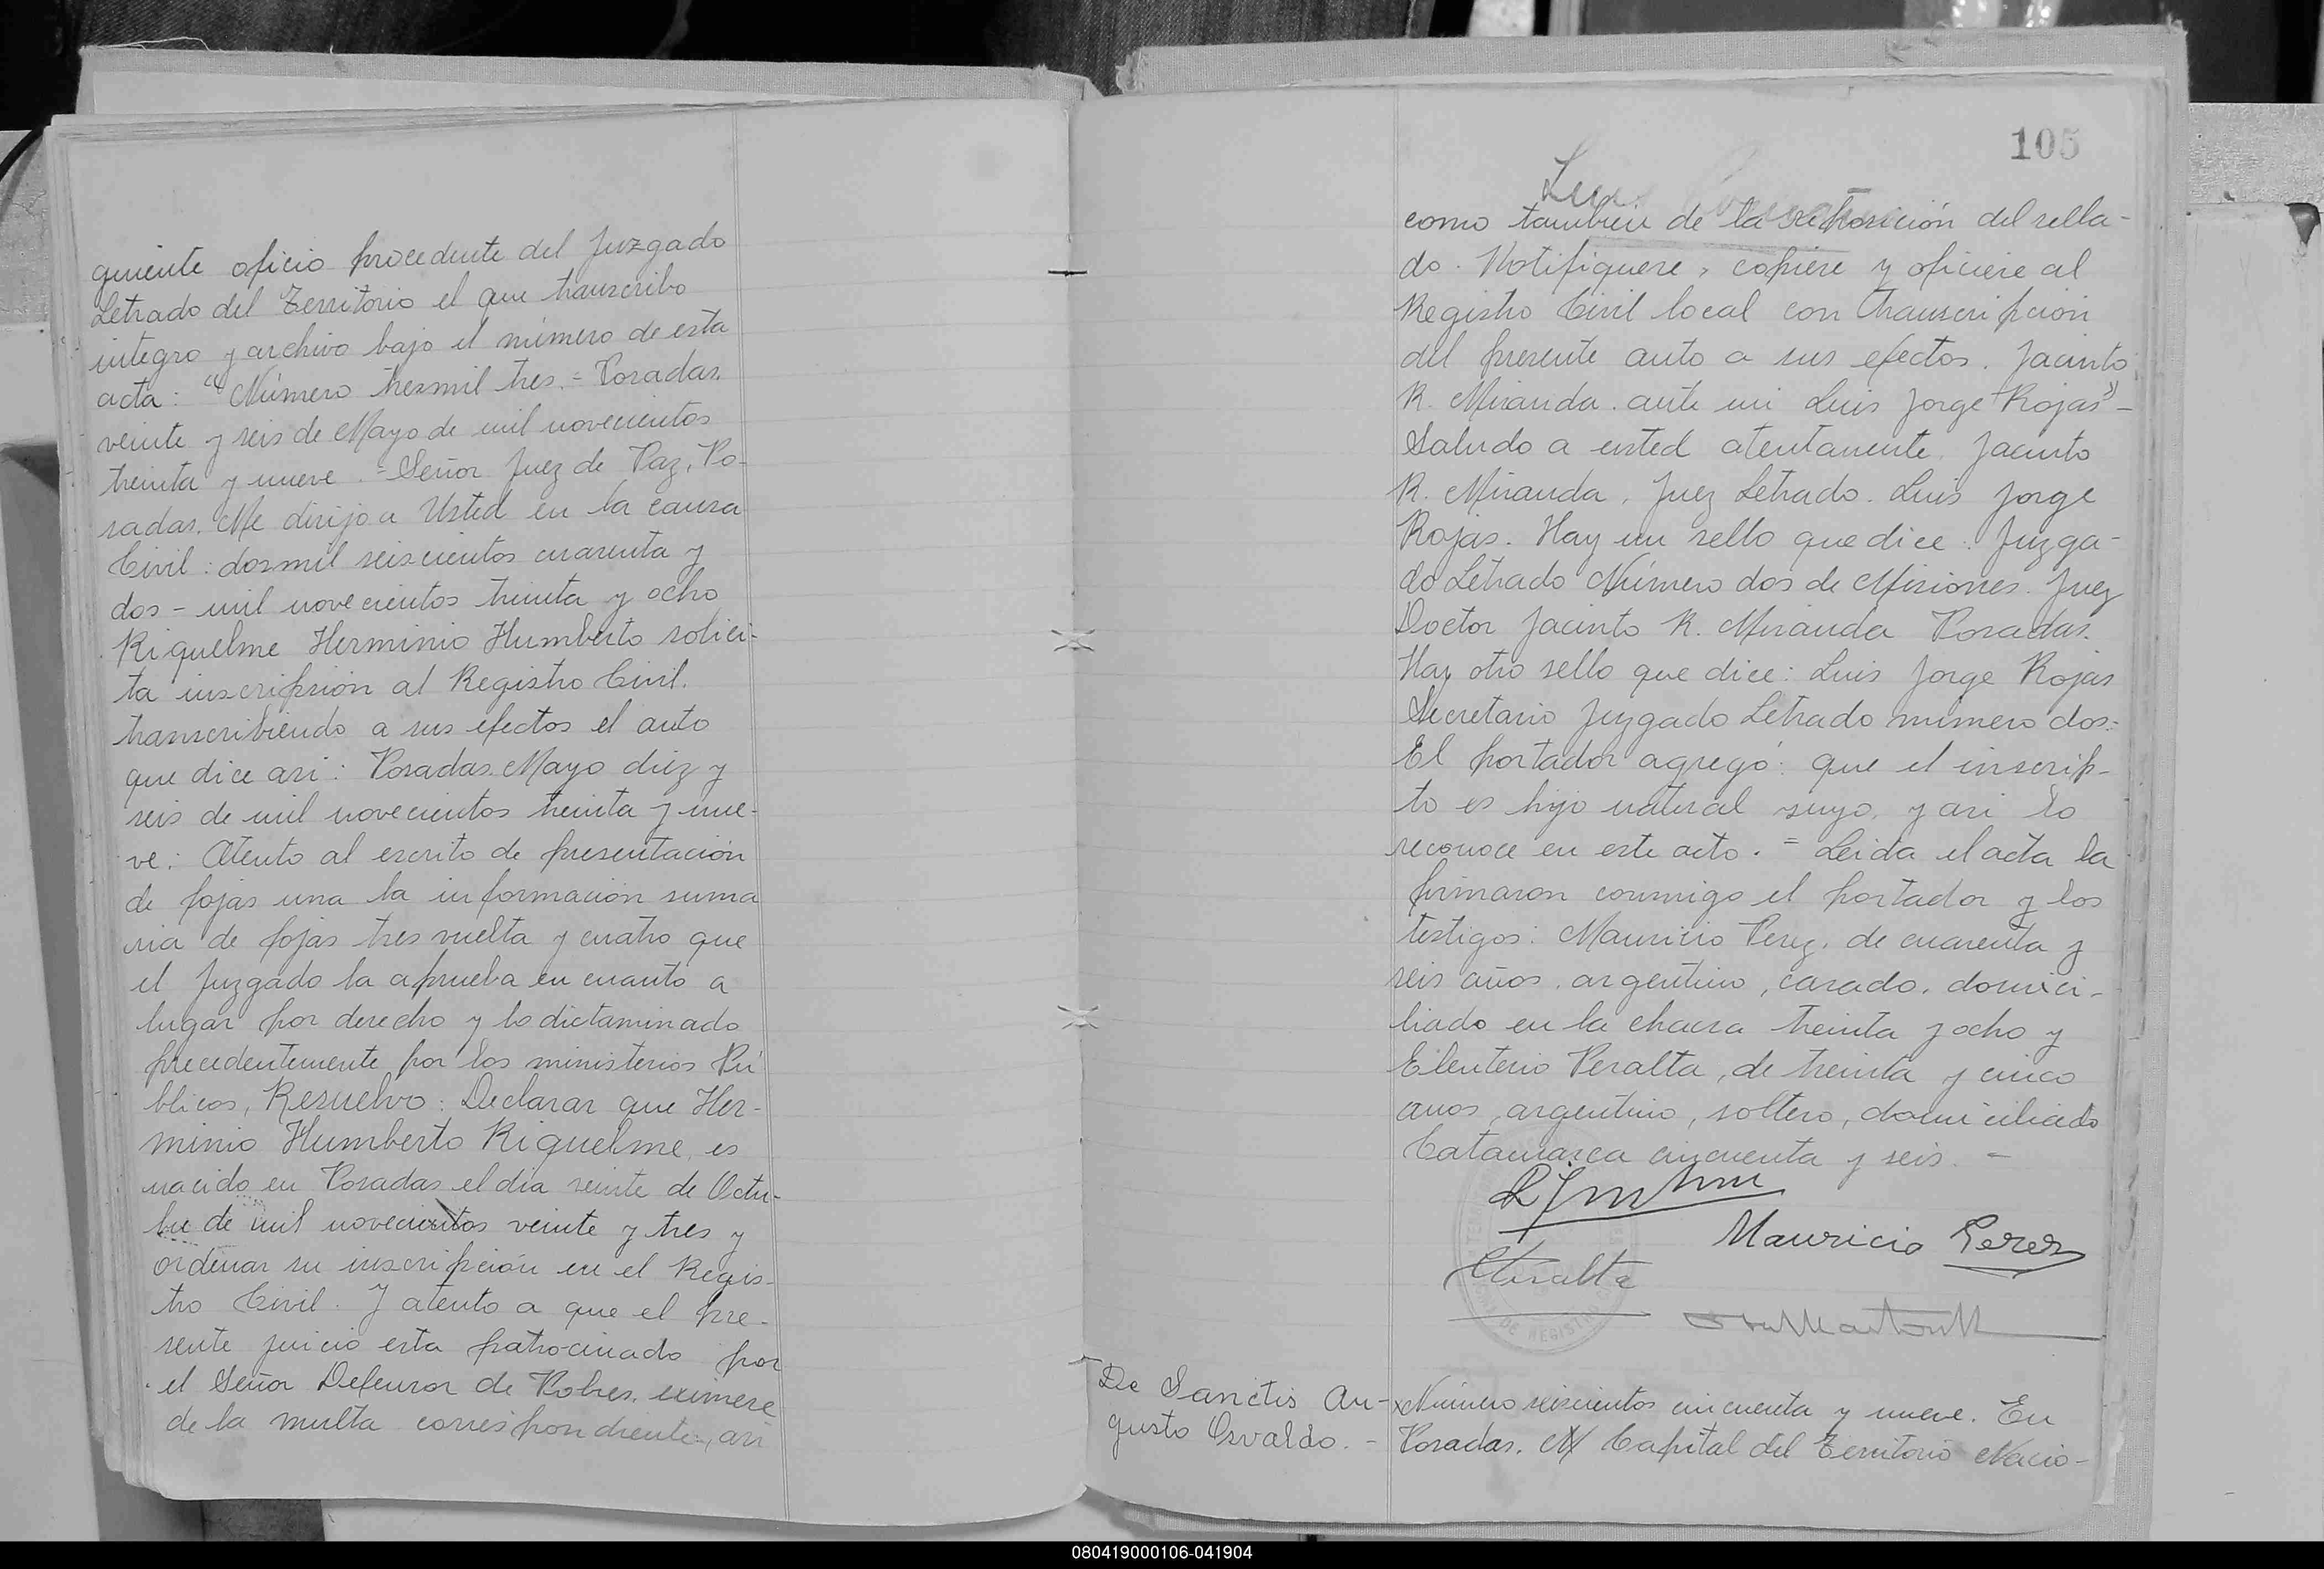 guiente oficio procedente del Juzgado
Letrado del Territorio el que transcribo
integro y archivo bajo el número de esta
acta: "Número tresmil tres. = Posadas,
veinte y seis de Mayo de mil novecientos
treinta y nueve. = Señor Juez de Paz, Po-
sadas. Me dirijo a Usted en la causa
Civil: dosmil seiscientos cuarenta y
dos - mil novecientos treinta y ocho
Riquelme Herminio Humberto solici-
ta inscripsión al Registro Civil.
transcribiendo a sus efectos el auto
que dice asi: Posadas, Mayo diez y
seis de mil novecientos treinta y nue-
ve: Atento al escrito de presentación
de fojas una la información suma
ria de fojas tres vuelta y cuatro que
el Juzgado la aprueba en cuanto a
lugar por derecho y lo dictaminado
precedentemente por los ministerios Pú
blicos, Resuelvo: Declarar que Her-
minio Humberto Riquelme, es
nacido en Posadas el día veinte de Octu-
bre de mil novecientos veinte y tres y
ordenar su inscripción en el Regis-
tro Civil. Y atento a que el pre-
sente juicio esta patrocinado por
el Señor Defensor de Pobres, eximese
de la multa correspondiente, asi
105
como también de la reposición del sella-
do. Notifiquese, copiese y oficiese al
Registro Civil local con transcripción
del presente auto a sus efectos. Jacinto
R. Miranda. ante mi Luis Jorge Rojas" -
Saludo a usted atentamente. Jacinto
R. Miranda, Juez Letrado. Luis Jorge
Rojas. Hay un sello que dice: Juzga-
do Letrado Número dos de Misiones. Juez
Doctor Jacinto R. Miranda Posadas.
Hay otro sello que dice: Luis Jorge Rojas
Secretario Juzgado Letrado número dos:
El portador agregó: que el inscrip-
to es hijo natural suyo, y asi lo
reconoce en este acto. = Leida el acta la
firmaron conmigo el portador y los
testigos: Mauricio Perez, de cuarenta y
seis años, argentino, casado, domici-
liado en la chacra treinta y ocho y
Eleuterio Peralta, de treinta y cinco
años, argentino, soltero, domiciliado
Catamarca cincuenta y seis. -
Mauricio Perez
EPeralta
De Sanctis Au-
gusto Osvaldo. -
Número seiscientos cincuenta y nueve. En
Posadas, Capital del Territorio Nacio-
080419000106-041904